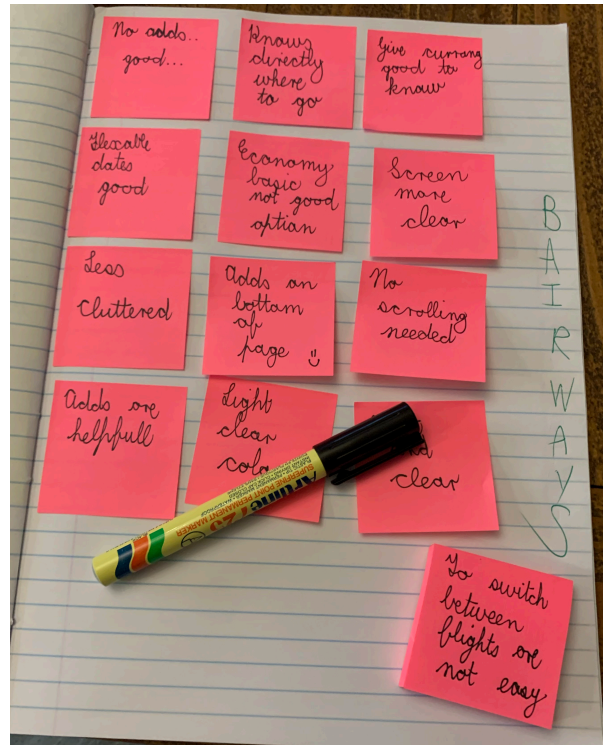 No adds..
good...
Knows
directly
where
to go
Give currang
good to
know
Flexable
dates
good
Economy
basic
not good
option
Screen
more
clear
Less
Cluttered
Adds on
bottom
of
page
No
scrolling
needed
Adds are
helpfull
Light
clear
clear
To switch
between
flights are
not easy
BAIRWAYS
Artline 725
SUPERFINE POINT PERMANENT MARKER